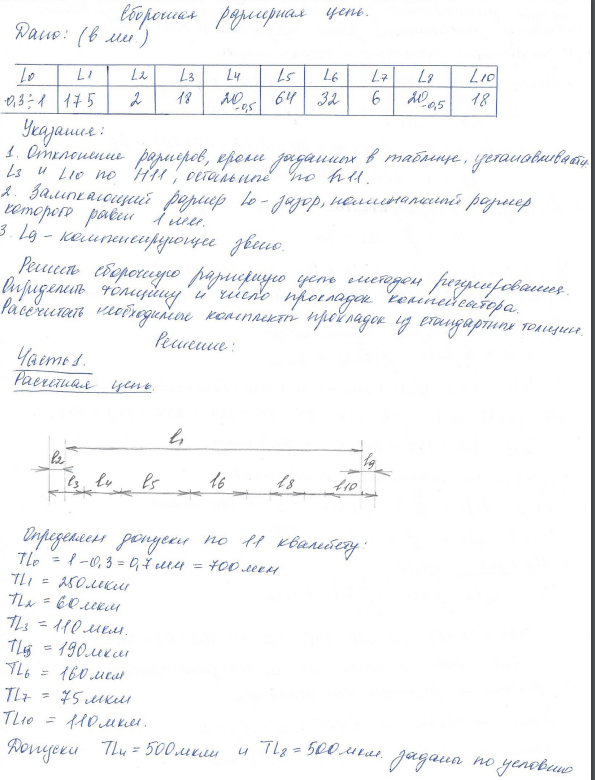 Сборочная размерная цепь.
Дано: (в мм.)
L0 L1 L2 L3 L4 L5 L6 L7 L8 L10
0,3÷1 175 2 18 20-0,5 64 32 6 20-0,5 18
Указание:
1. Отклонение размеров, кроме заданных в таблице, устанавливать
L3 и L10 по H11, остальные по h11.
2. Замыкающий размер L0 - зазор, номинальный размер
которого равен 1 мм.
3. L9 - компенсирующее звено.
Решить сборочную размерную цепь методом регулирования.
Определить толщину и число прокладок компенсатора.
Рассчитать необходимые комплекты прокладок из стандартных толщин.
Решение:
Часть 1.
Расчетная цепь.
l1
l2 l9
l3 l4 l5 l6 l8 l10
Определяем допуски по 11 квалитету:
TL0 = 1-0,3=0,7мм = 700мкм
TL1 = 250мкм
TL2 = 60мкм
TL3 = 110мкм.
TL5 = 190мкм
TL6 = 160мкм
TL7 = 75мкм
TL10 = 110мкм.
Допуски TL4=500мкм и TL8=500мкм. заданы по условию